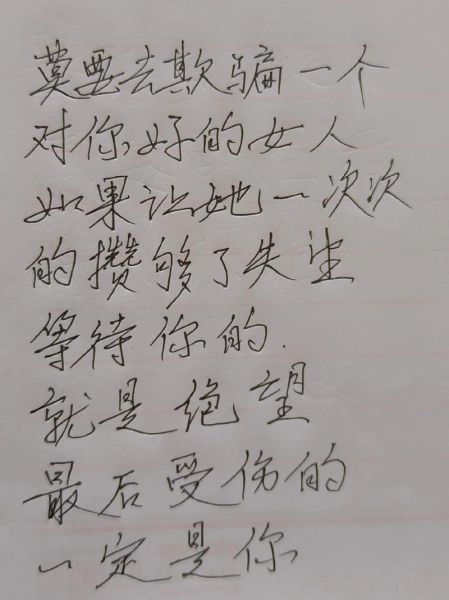 莫要去欺骗一个
对你好的女人
如果让她一次次
的攒够了失望
等待你的.
就是绝望
最后受伤的
一定是你